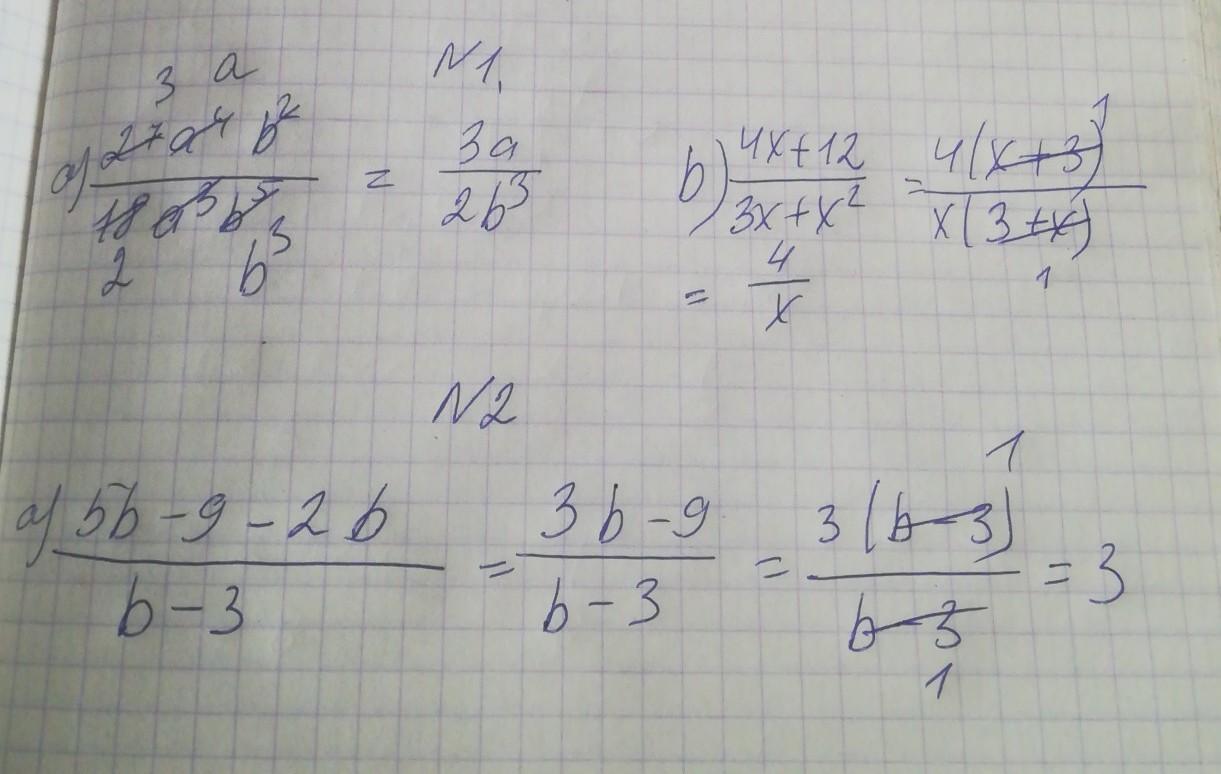 N1.
a) 27a⁴b² / 18a³b⁵ = 3a / 2b³
3 a
2 b³
b) 4x+12 / 3x+x² = 4(x+3) / x(3+x)
1
1
= 4 / x
N2
a) 5b-9-2b / b-3 = 3b-9 / b-3 = 3(b-3) / b-3 = 3
1
1